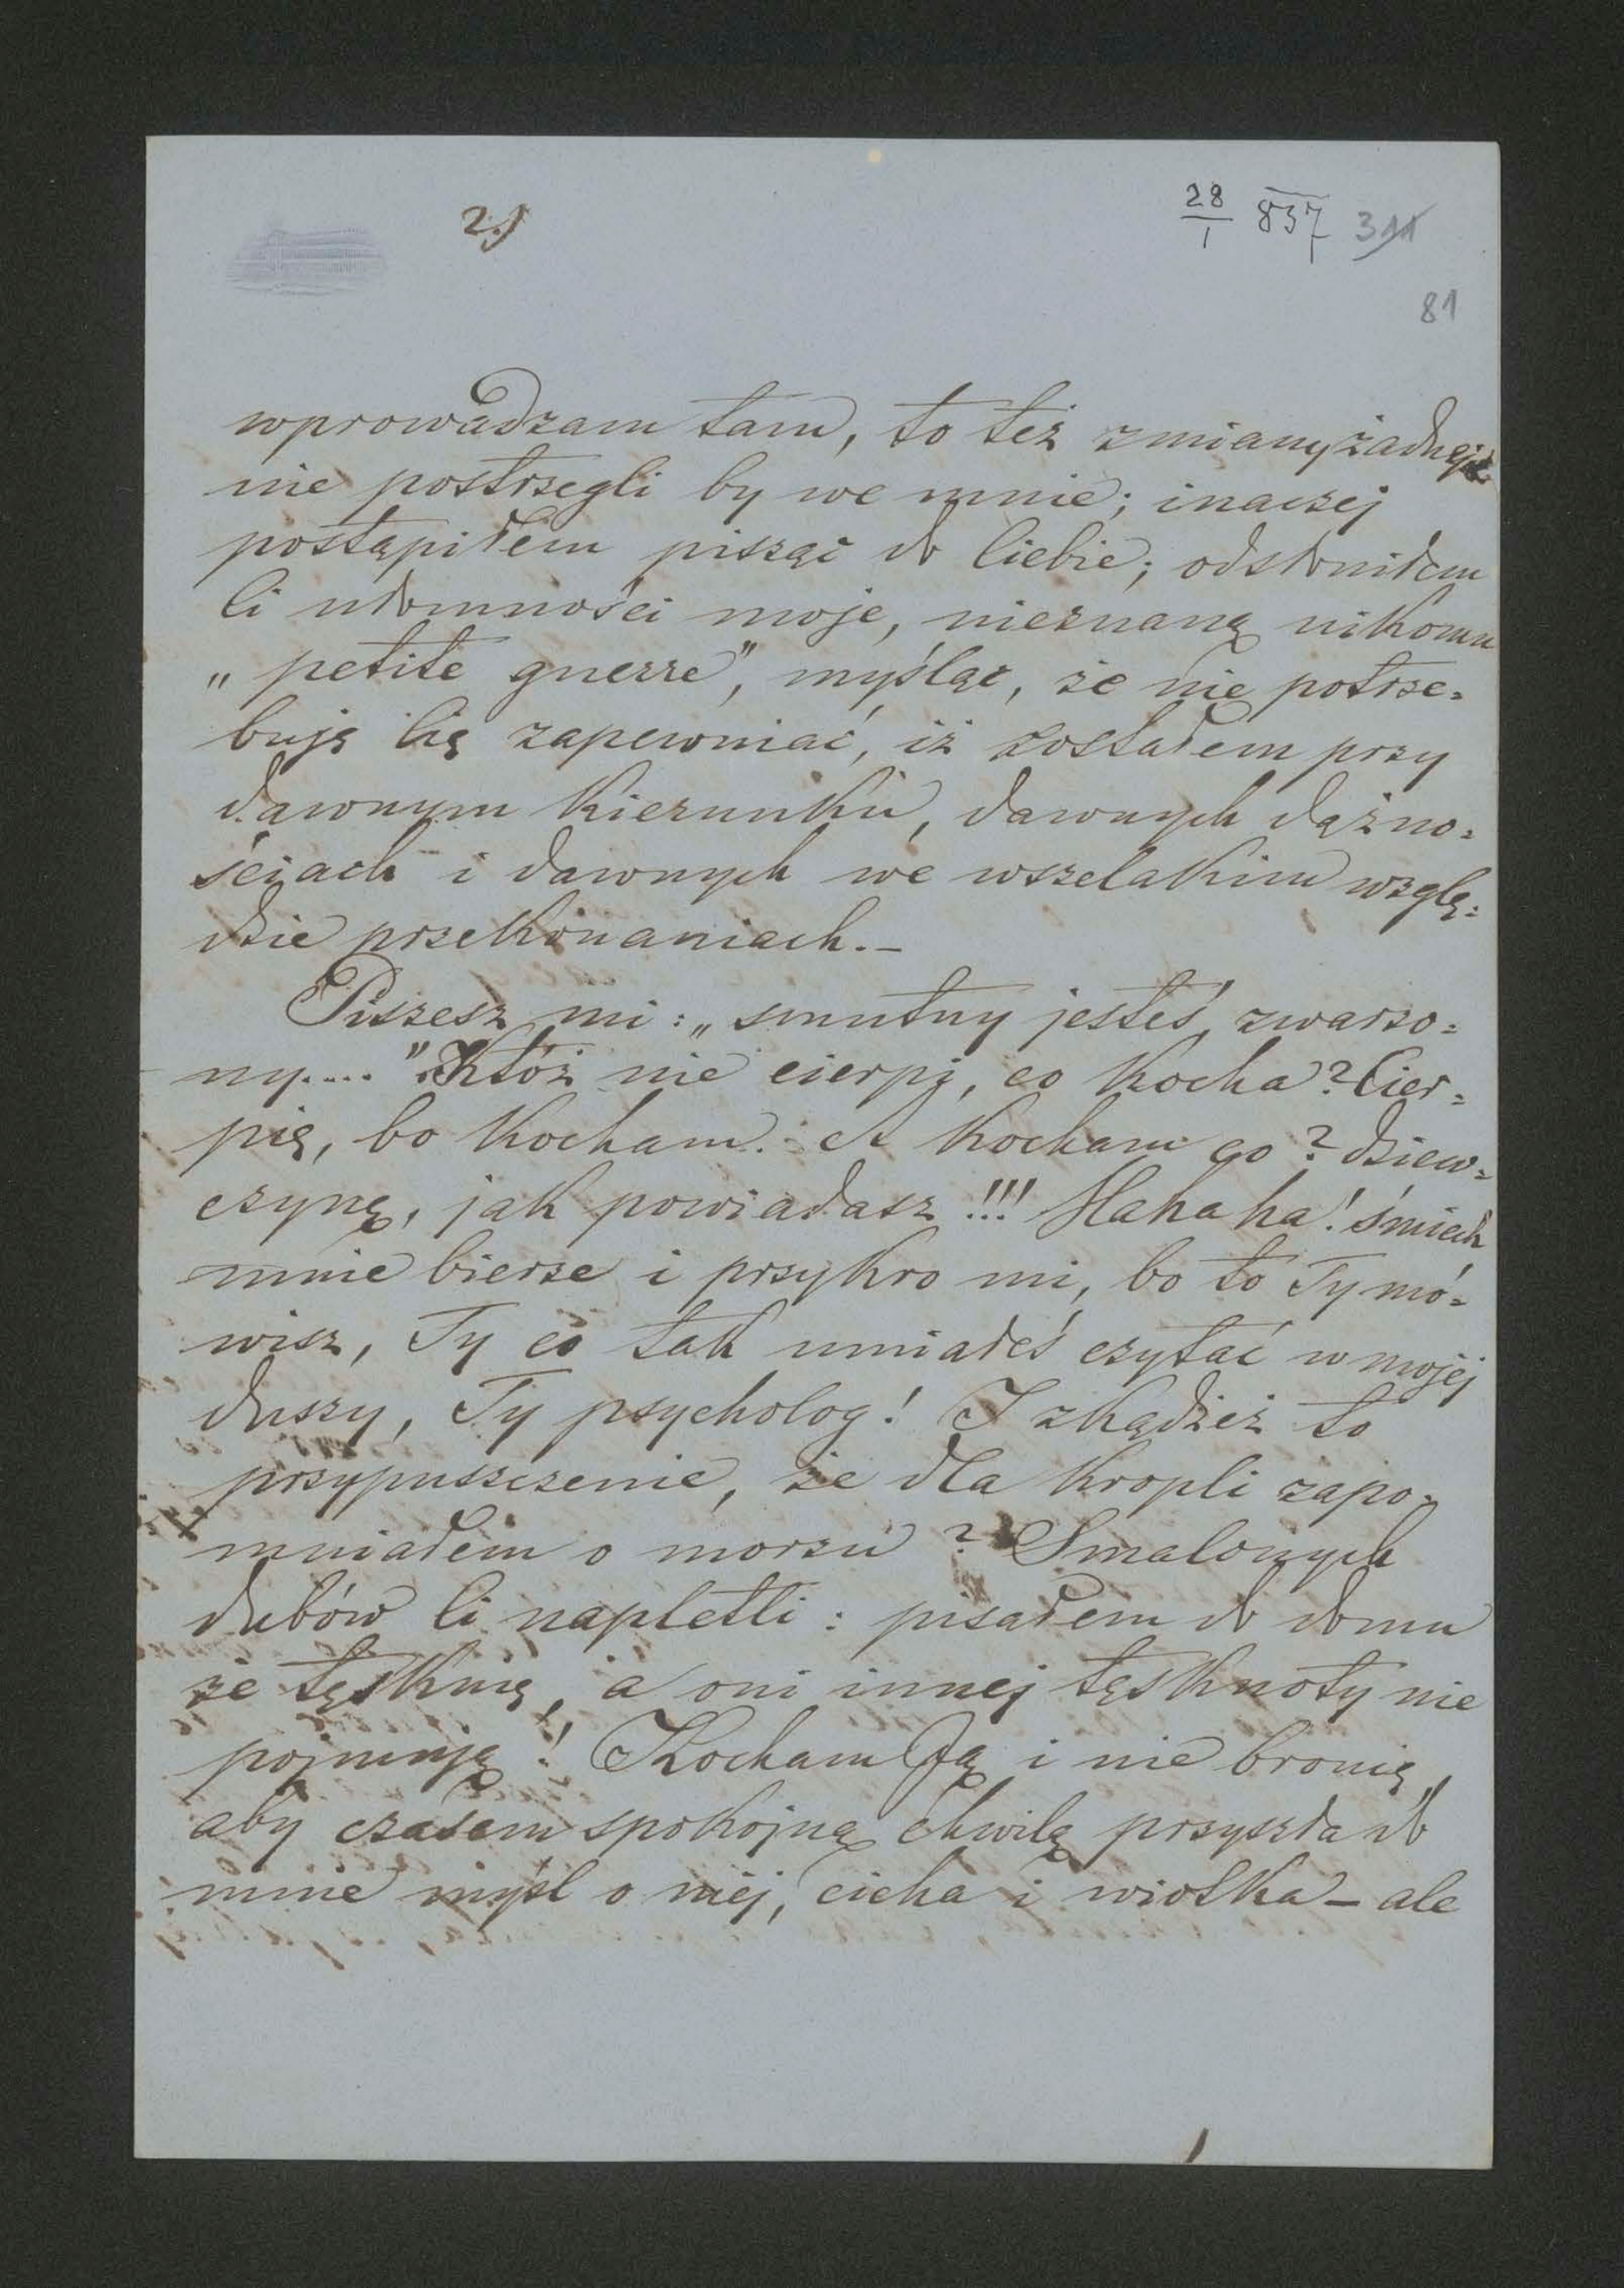 2.)
28/1 837 311
81
wprowadzam tam, to też zmiany żadnej
nie postrzegli by we mnie; inaczej
postąpiłem pisząc do Ciebie; odsłoniłem
Ci ułomności moje, nieznaną nikomu
„petite guerre”, myśląc, że nie potrze=
buję Cię zapewniać, iż zostałem przy
dawnym kierunku, dawnych dążno=
ściach i dawnych we wszelakim wzglę=
dzie przekonaniach.–
Piszesz mi: „smutny jesteś, zwarzo=
ny....” Któż nie cierpi, co kocha? Cier=
pię, bo kocham. A kocham co? dziew=
czynę, jak powiadasz!!! Ha ha ha! śmiech
mnie bierze i przykro mi, bo to Ty mó=
wisz, Ty co tak umiałeś czytać w mojej
duszy, Ty psycholog! I zkądżeż to
przypuszczenie, że dla kropli zapo=
mniałem o morzu? Smalonych
dubów Ci napletli: pisałem do domu
że tęsknię, a oni innej tęsknoty nie
pojmują! Kocham Ją i nie bronię,
aby czasem spokojną chwilą przyszła do
mnie myśl o niéj, cicha i wiotka – ale